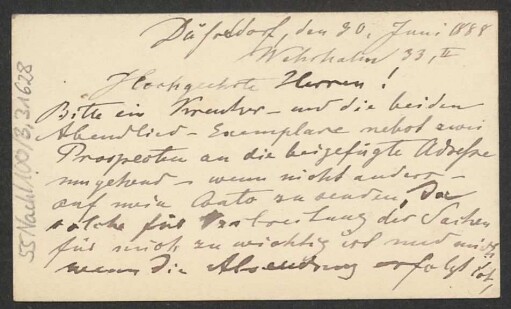 Düsseldorf, den 20. Juni 1888
Wehrhahn 33, II
Hochgeehrte Herren!
Bitte ein Kreutzer- und die beiden
Abendlied-Exemplare nebst zwei
Prospecten an die beigefügte Adresse
umgehend - wenn nicht anders -
auf mein Conto zu senden, da
solche für Verbreitung der Sachen
für mich zu wichtig ist und
wenn die Absendung erfolgt ist,
55 Nachl. 100/B, 31628